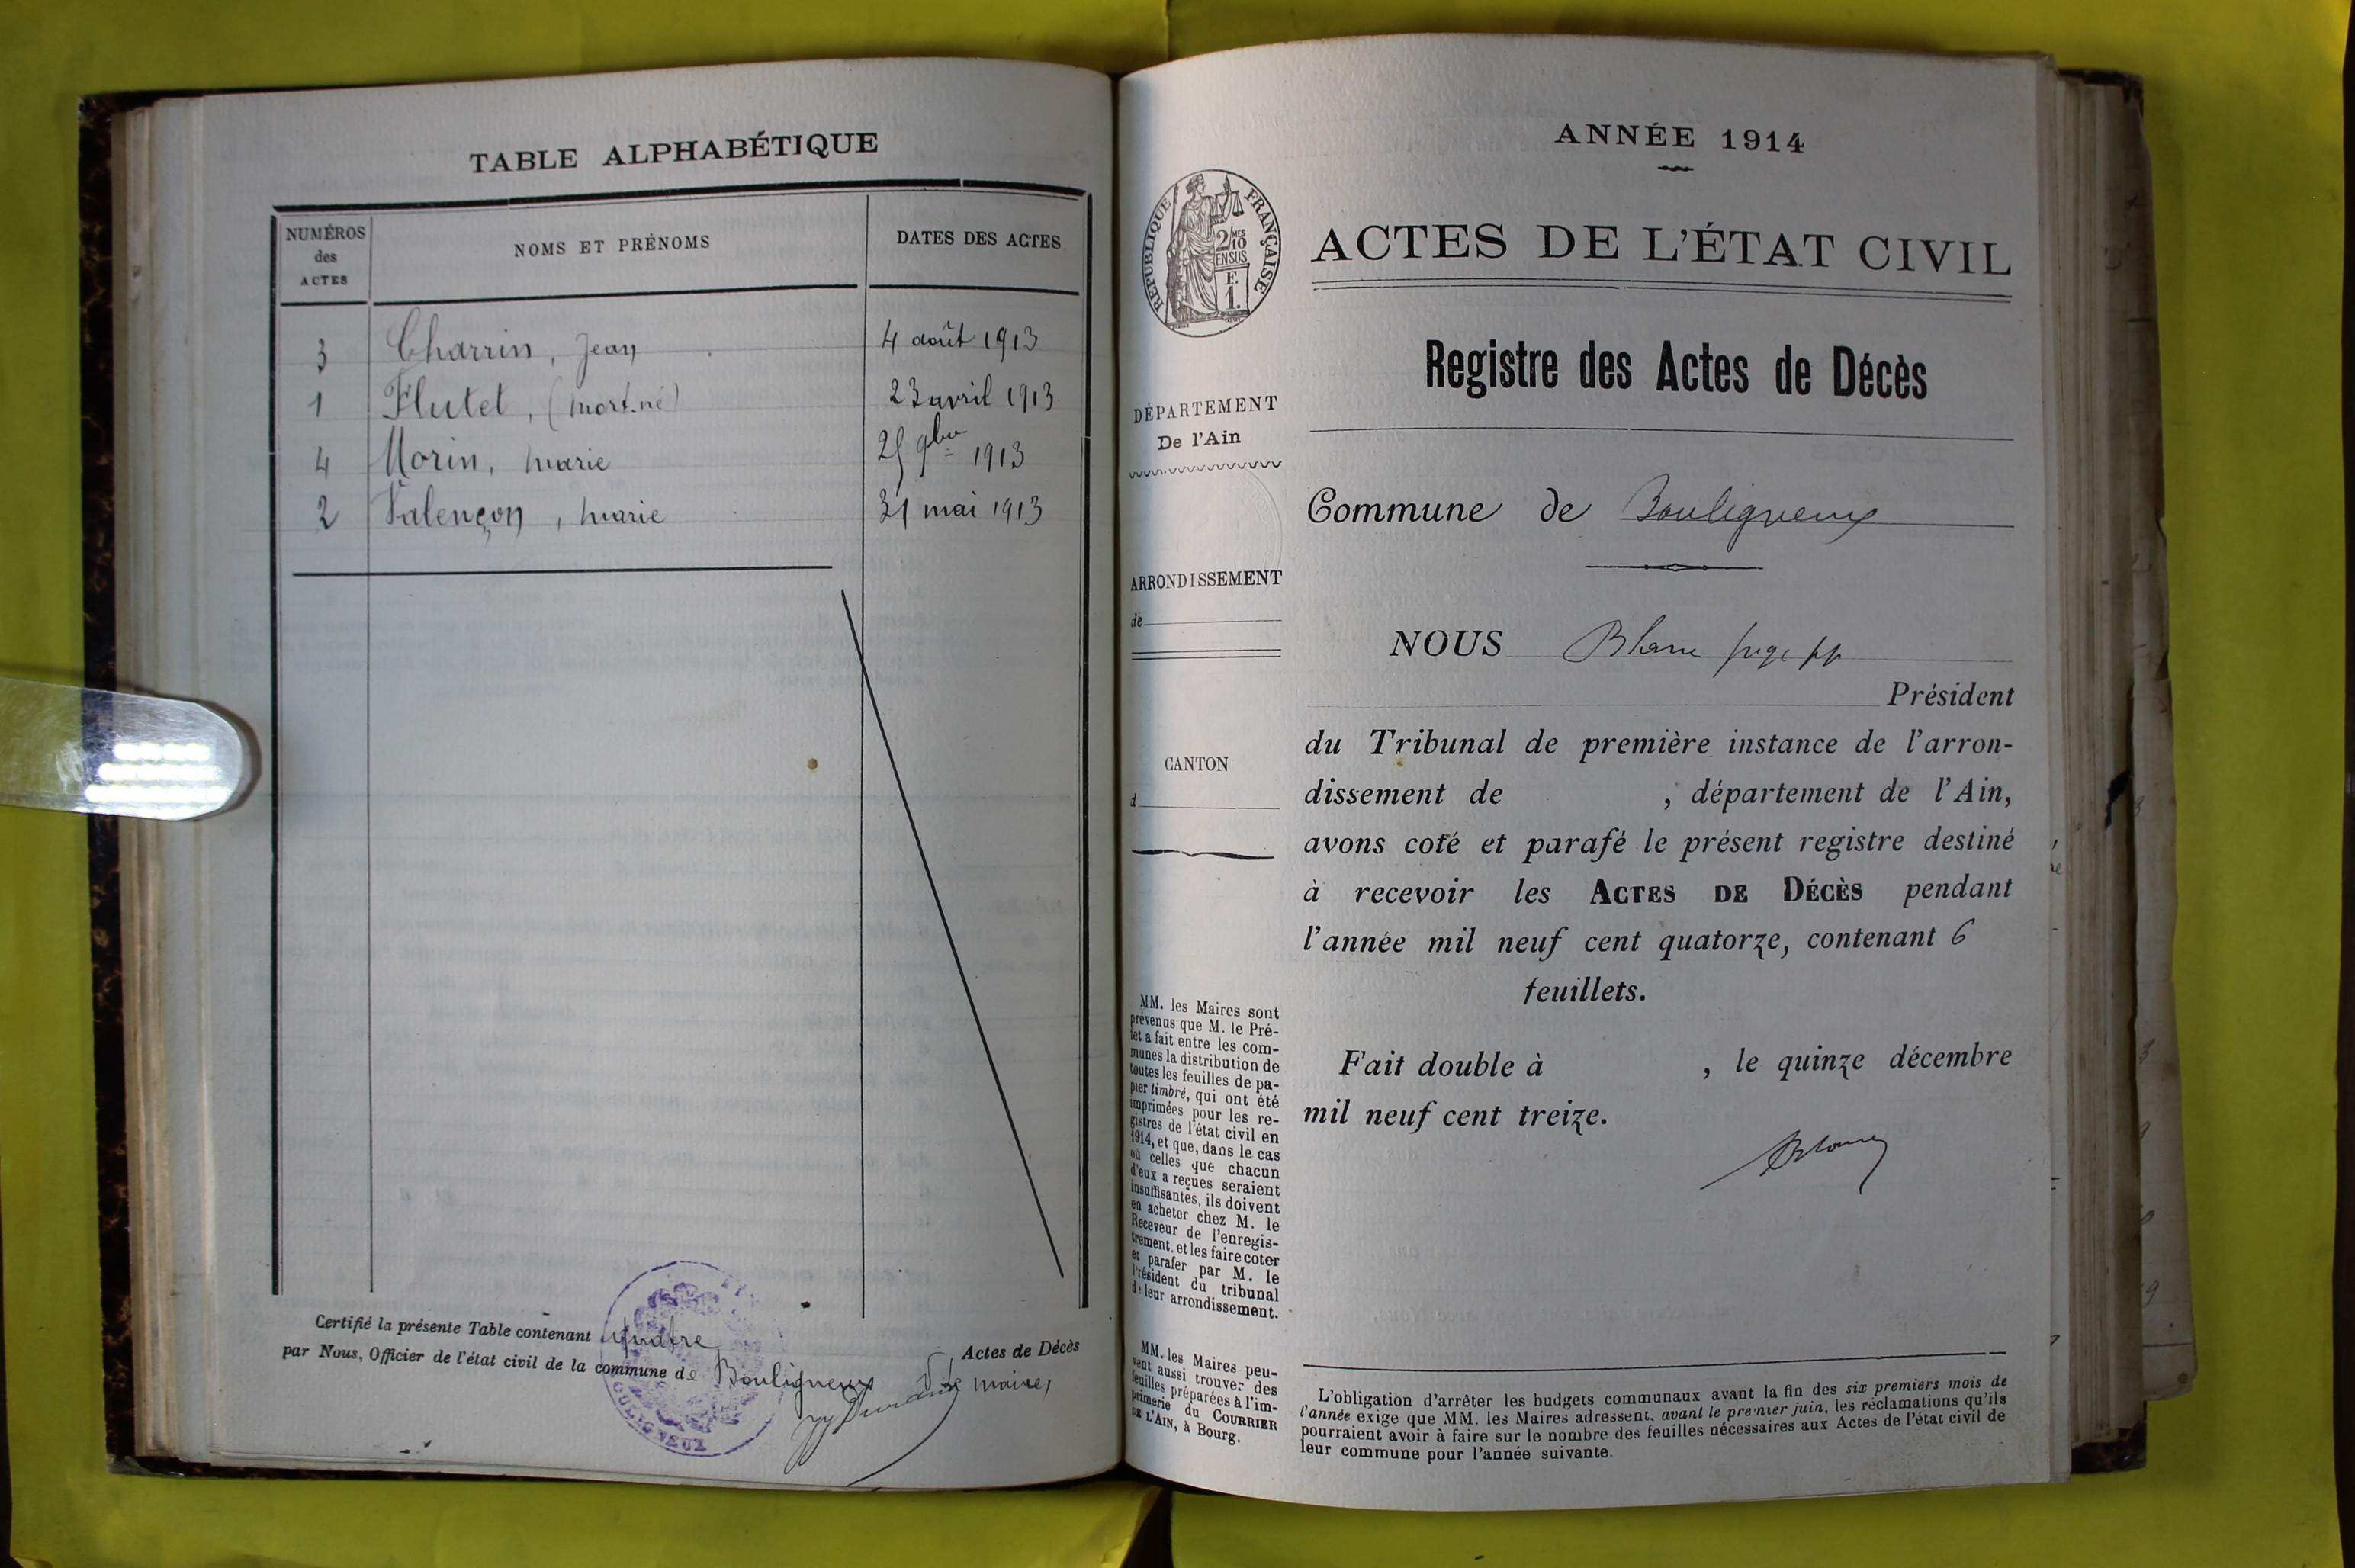 TABLE ALPHABÉTIQUE
NUMÉROS des ACTES
NOMS ET PRÉNOMS
DATES DES ACTES
3 Charrin, Jean 4 août 1913
1 Flutet, (mort-né) 23 avril 1913
4 Morin, marie 25 9bre 1913
2 Valençon, marie 31 mai 1913
Certifié la présente Table contenant quatre Actes de Décès
par Nous, Officier de l'état civil de la commune de Bouligneux
maire,
BOULIGNEUX
ANNÉE 1914
RÉPUBLIQUE FRANÇAISE
2/10 MES
EN SUS
F.
1.
ACTES DE L'ÉTAT CIVIL
Registre des Actes de Décès
DÉPARTEMENT
De l'Ain
Commune de Bouligneux
ARRONDISSEMENT
de
NOUS Blanc juge pp
Président
du Tribunal de première instance de l'arron-
CANTON
d
dissement de , département de l'Ain,
avons coté et parafé le présent registre destiné
à recevoir les ACTES DE DÉCÈS pendant
l'année mil neuf cent quatorze, contenant 6
feuillets.
Fait double à , le quinze décembre
mil neuf cent treize.
MM. les Maires sont
prévenus que M. le Pré-
fet a fait entre les com-
munes la distribution de
toutes les feuilles de pa-
pier timbré, qui ont été
imprimées pour les re-
gistres de l'état civil en
1914, et que, dans le cas
où celles que chacun
d'eux a reçues seraient
insuffisantes, ils doivent
en acheter chez M. le
Receveur de l'enregis-
trement, et les faire coter
et parafer par M. le
Président du tribunal
de leur arrondissement.
MM. les Maires peu-
vent aussi trouver des
feuilles préparées à l'im-
primerie du COURRIER
DE L'AIN, à Bourg.
L'obligation d'arrêter les budgets communaux avant la fin des six premiers mois de
l'année exige que MM. les Maires adressent, avant le premier juin, les réclamations qu'ils
pourraient avoir à faire sur le nombre des feuilles nécessaires aux Actes de l'état civil de
leur commune pour l'année suivante.